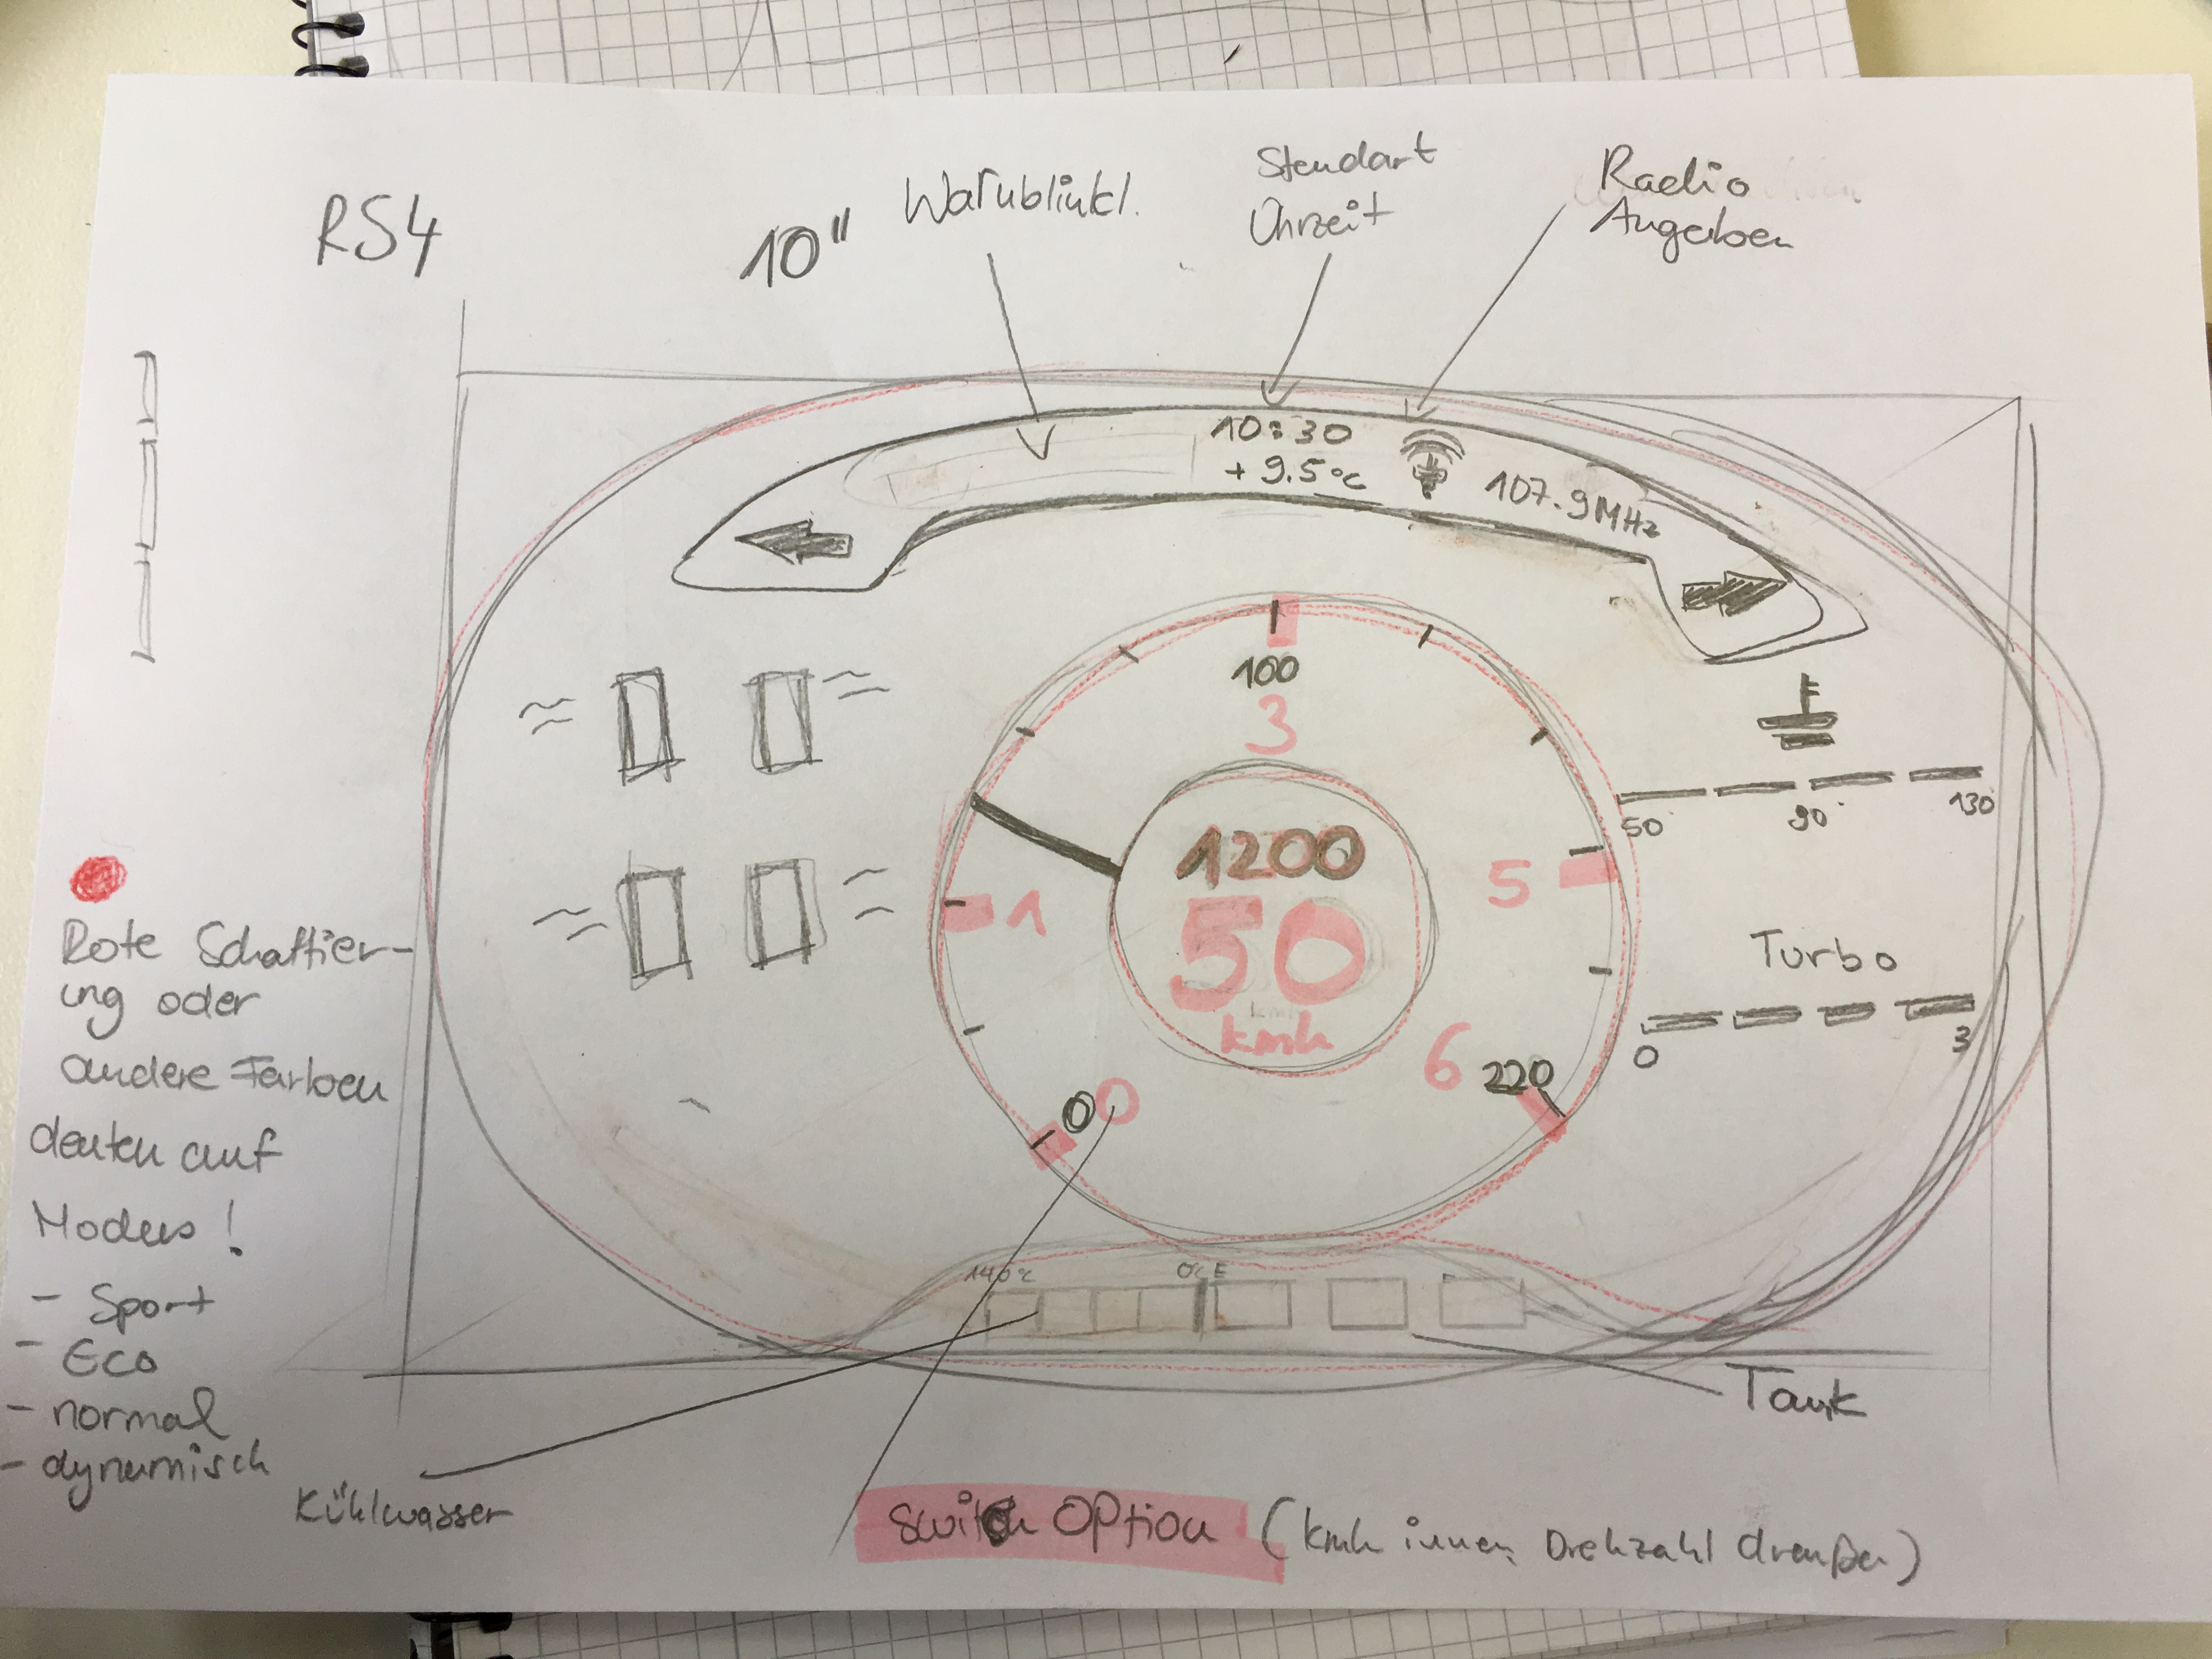 RS4
10"
Warnblinkl.
Standart
Uhrzeit
Radio
Angaben
10:30
+9.5°C
107.9MHz
100
3
1200
50
kmh
1
5
0
0
6
220
50
90
130
Turbo
0
3
140°C
0°C E
Rote Schattier-
ung oder
andere Farben
deuten auf
Modus!
- Sport
- Eco
- normal
- dynamisch
Kühlwasser
Tank
Switch Option (kmh innen Drehzahl draußen)